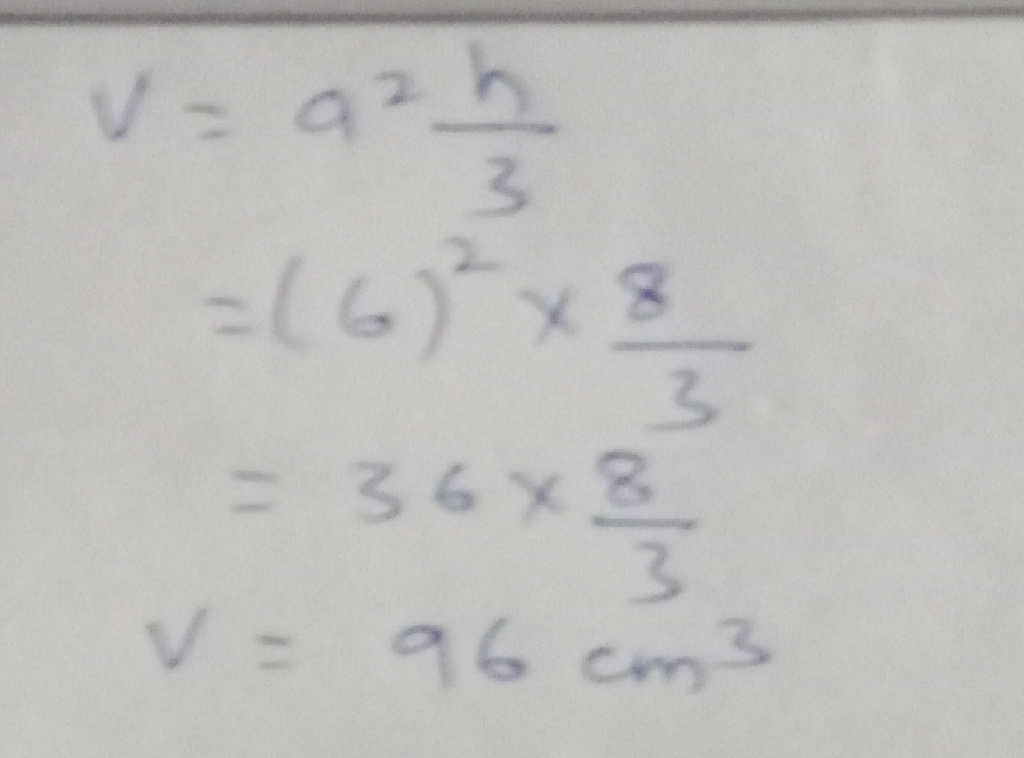 V = a² h/3
= (6)² × 8/3
= 36 × 8/3
V = 96 cm³